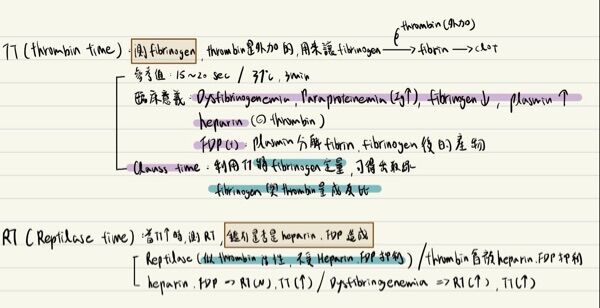 thrombin (外加)
TT (thrombin time) : 測 fibrinogen, thrombin是外加的, 用來讓 fibrinogen → fibrin → clot
參考值 : 15~20 sec / 37℃, 3min
臨床意義 : Dysfibrinogenemia, Paraproteinemia (Ig↑), fibrinogen↓, plasmin ↑
heparin (⊖ thrombin)
FDP(↑) : plasmin 分解 fibrin, fibrinogen 後的產物
Clauss time : 利用 TT 時 fibrinogen 定量, 可得出
fibrinogen 與 thrombin 量成反比
RT (Reptilase time) : 當TT↑時, 測 RT, 是否是 heparin, FDP 造成
Reptilase (似 thrombin 活性, 不受 Heparin, FDP 抑制) / thrombin 會被 heparin, FDP 抑制
heparin, FDP => RT(N), TT(↑) / Dysfibrinogenemia => RT(↑), TT(↑)